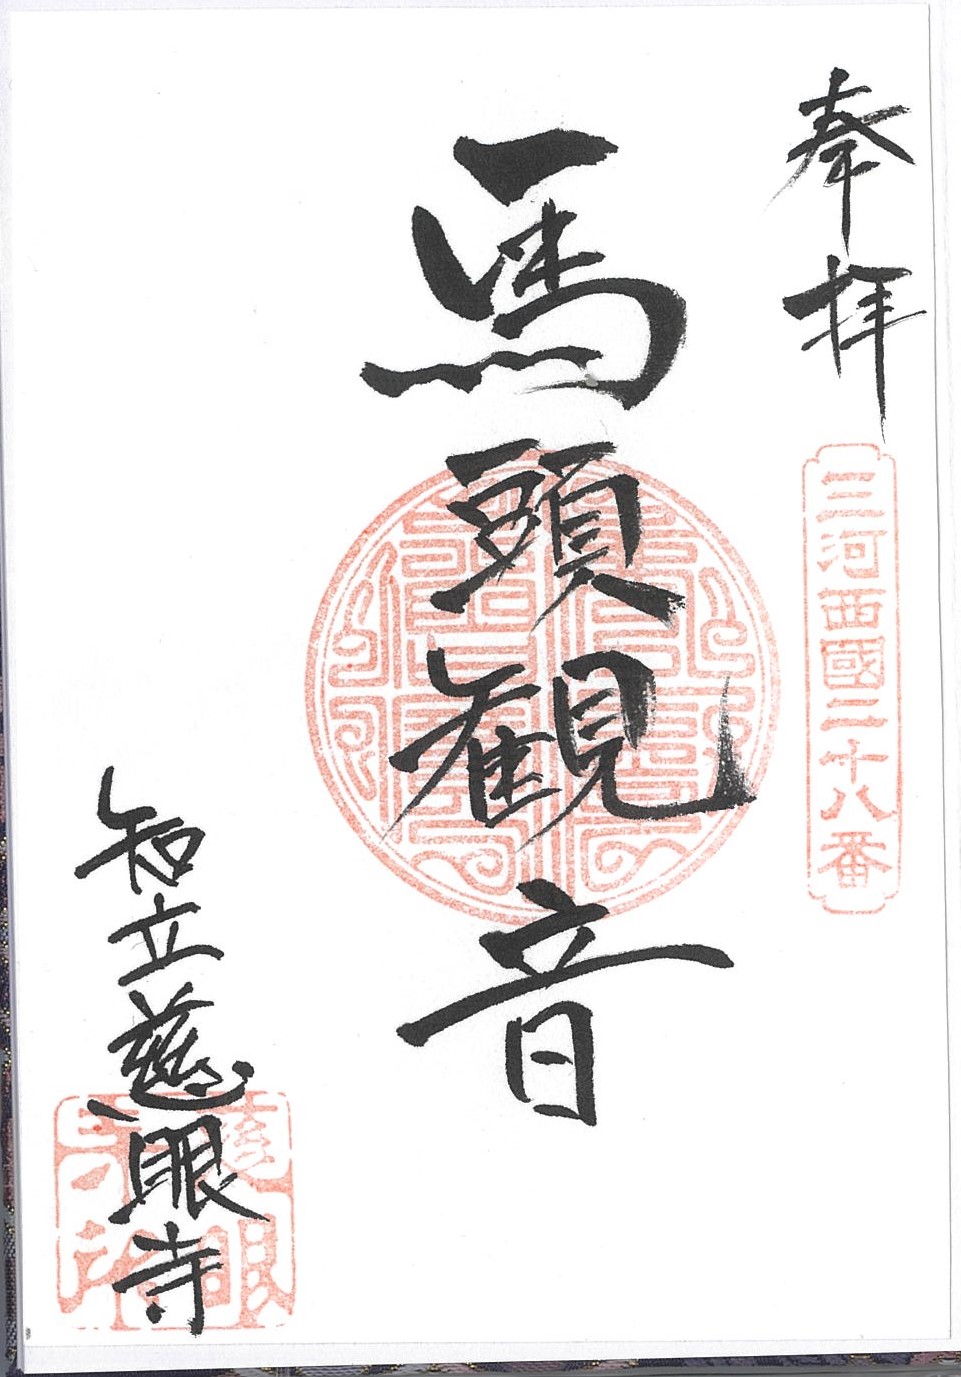 奉拝
三河西國二十八番
馬頭観音
知立慈眼寺